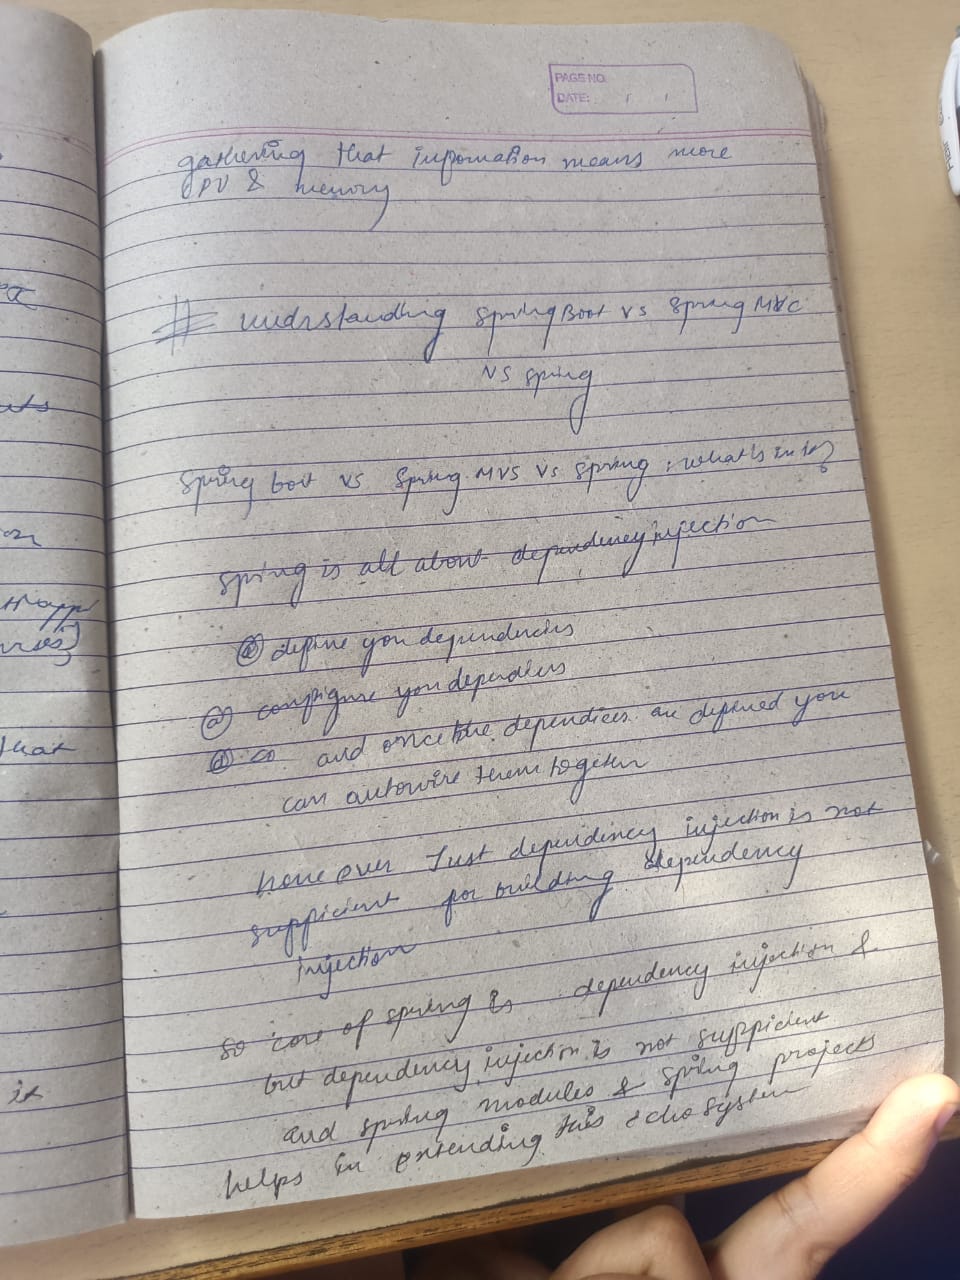 PAGE NO.
DATE: / /
gathering that information means more
CPU & memory
# undrstanding Spring Boot vs Spring MVC
vs spring
Spring boot vs Spring MVS vs spring : what's in it?
spring is all about dependency injection
@ define you dependencies
@ configure you dependies
@ and once the dependices are defined you
can autowire them together
however Just dependency injection is not
sufficient for building dependency
injection
so core of spring is dependency injection &
but dependency injection is not sufficient
and spring modules & spring projects
helps in extending this echo system